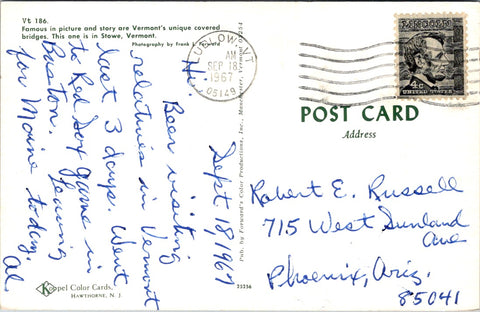 Vt 186.
Famous in picture and story are Vermont's unique covered
bridges. This one is in Stowe, Vermont.
Photography by Frank L. Forward
Hi,
Sept 18, 1967
Been visiting
relatives in Vermont
last 3 days. Went
to Red Sox game in
Boston. Leaving
for Maine today.
Al.
Koppel Color Cards,
HAWTHORNE, N. J.
Pub. by Forward's Color Productions, Inc., Manchester, Vermont 05254
25256
LUDLOW, VT
AM
SEP 18
1967
05149
LINCOLN
4¢
UNITED STATES
POST CARD
Address
Robert E. Russell
715 West Sunland
Ave
Phoenix, Ariz.
85041